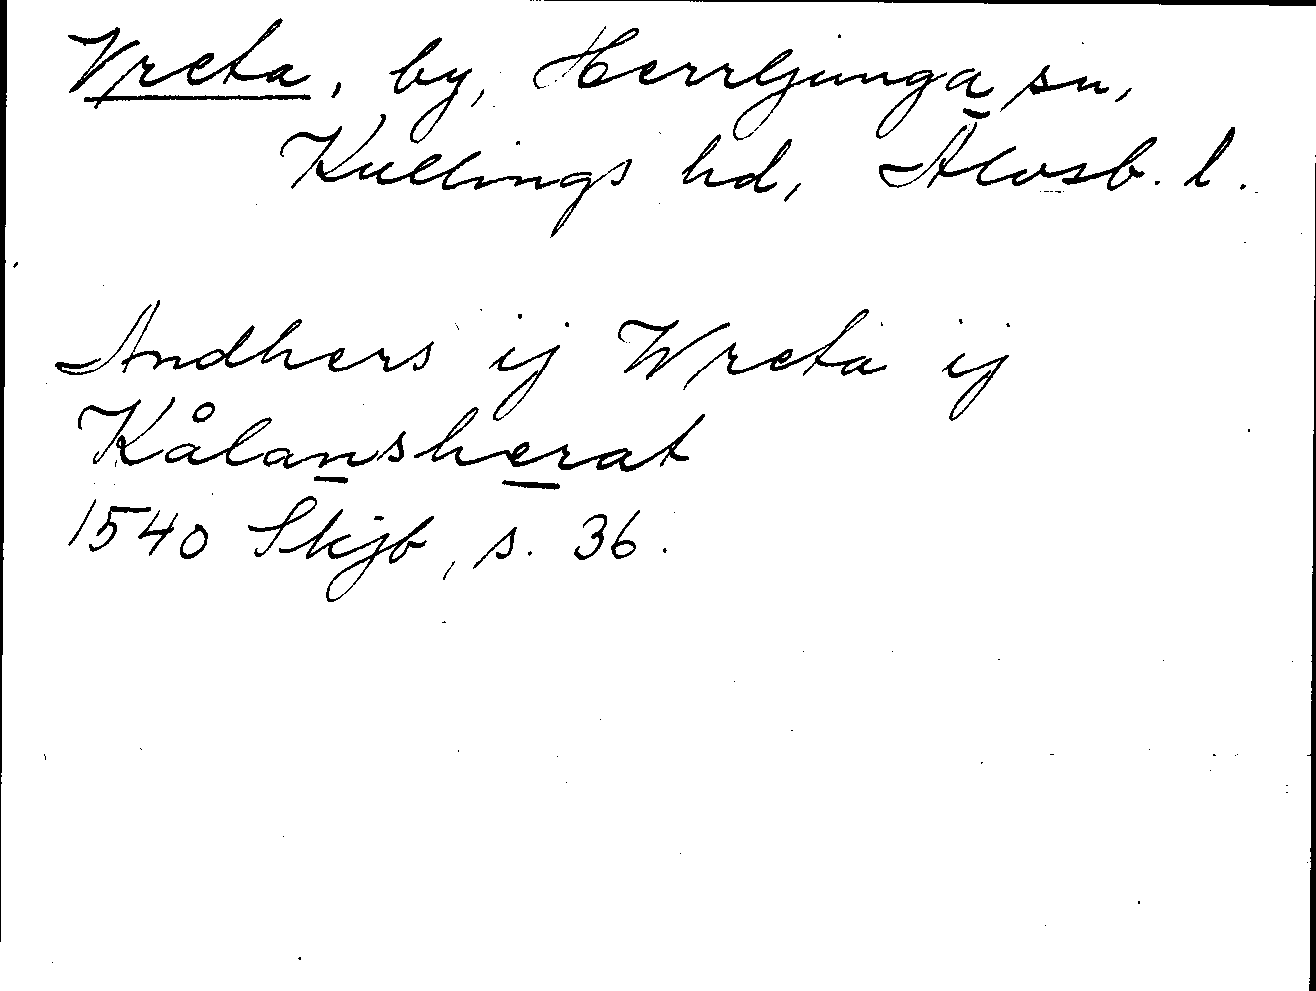 Vreta, by, Herrljunga sn,
Kullings hd, Älvsb. l.
Andhers ij Wreta ij
Kålansherat
1540 Skjb, s. 36.